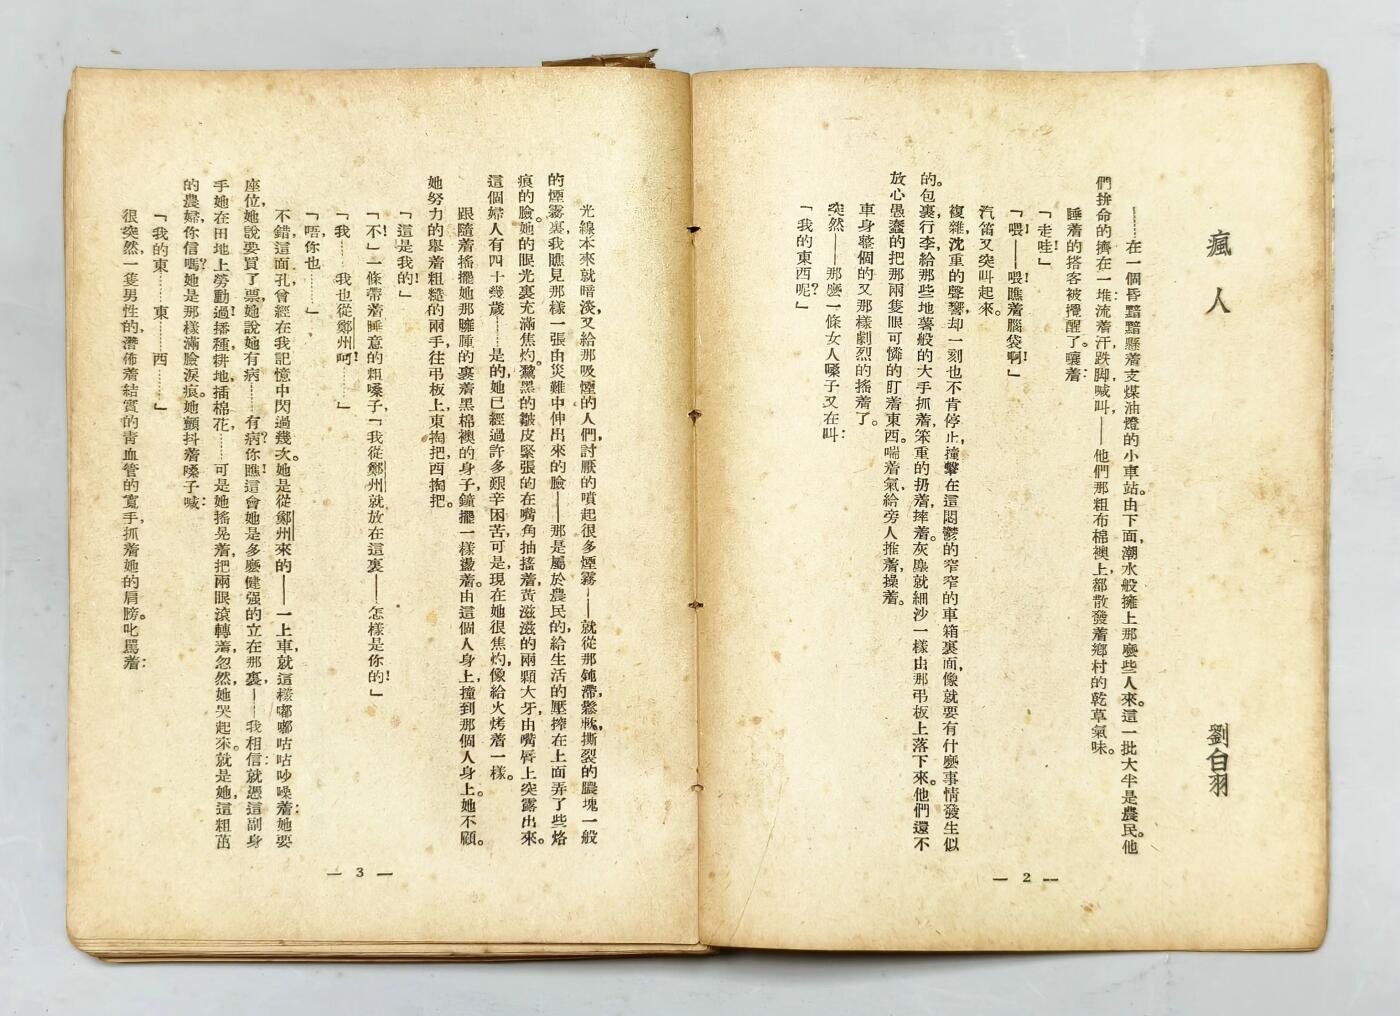 瘋人
劉白羽
………在一個昏黯黯懸着支煤油燈的小車站。由下面，潮水般擁上那麼些人來。這一批大半是農民。他
們拚命的擠在一堆，流着汗，跌脚，喊叫——他們那粗布棉襖上，都散發着鄉村的乾草氣味。
睡着的搭客被攪醒了。嚷着：
「走哇！」
「喂！——喂！瞧着腦袋啊！」
汽笛又突叫起來。
複雜，沈重的聲響，却一刻也不肯停止，撞擊在這悶鬱的窄窄的車箱裏面，像就要有什麼事情發生似
的。包裹行李給那些地薯般的大手抓着，笨重的扔着，摔着。灰塵就細沙一樣由那弔板上落下來。他們還不
放心，愚蠢的把那兩隻眼可憐的盯着東西。喘着氣，給旁人推着，操着。
車身整個的又那樣劇烈的搖着了。
突然——那麼一條女人嗓子又在叫：
「我的東西呢？」
— 2 —
光線本來就暗淡，又給那吸煙的人們，討厭的噴起很多煙霧——就從那鈍滯，鬆軟，撕裂的膿塊一般
的煙霧裏，我瞧見那樣一張由災難中伸出來的臉——那是屬於農民的，給生活的壓搾在上面弄了些烙
痕的臉。她的眼光裏充滿焦灼。黧黑的皺皮緊張的在嘴角抽搐着，黃滋滋的兩顆大牙由嘴唇上突露出來。
這個婦人有四十幾歲………是的，她已經過許多艱辛困苦，可是，現在她很焦灼，像給火烤着一樣。
跟隨着搖擺，她那臃腫的裹着黑棉襖的身子，鐘擺一樣盪着。由這個人身上，撞到那個人身上。她不顧。
她努力的舉着粗糙的兩手，往弔板上東掏把西掏把。
「這是我的！」
「不！」一條帶着睡意的粗嗓子，「我從鄭州就放在這裏——怎樣是你的！」
「我……我也從鄭州呵！………」
「唔，你也………」
不錯，這面孔曾經在我記憶中閃過幾次。她是從鄭州來的——一上車，就這樣嘟嘟咕咕吵噪着：她要
座位，她說要買了票，她說她有病………有病？你瞧！這會她是多麼健强的立在那裏——我相信：就憑這副身
手，她在田地上勞動過！播種，耕地，插棉花………可是她搖晃着，把兩眼滾轉着，忽然，她哭起來。就是她，這粗茁
的農婦，你信嗎？她是那樣滿臉淚痕。她顫抖着嗓子喊：
「我的東……東……西………」
很突然，一隻男性的，潛佈着結實的靑血管的寬手，抓着她的肩膀。叱罵着：
— 3 —